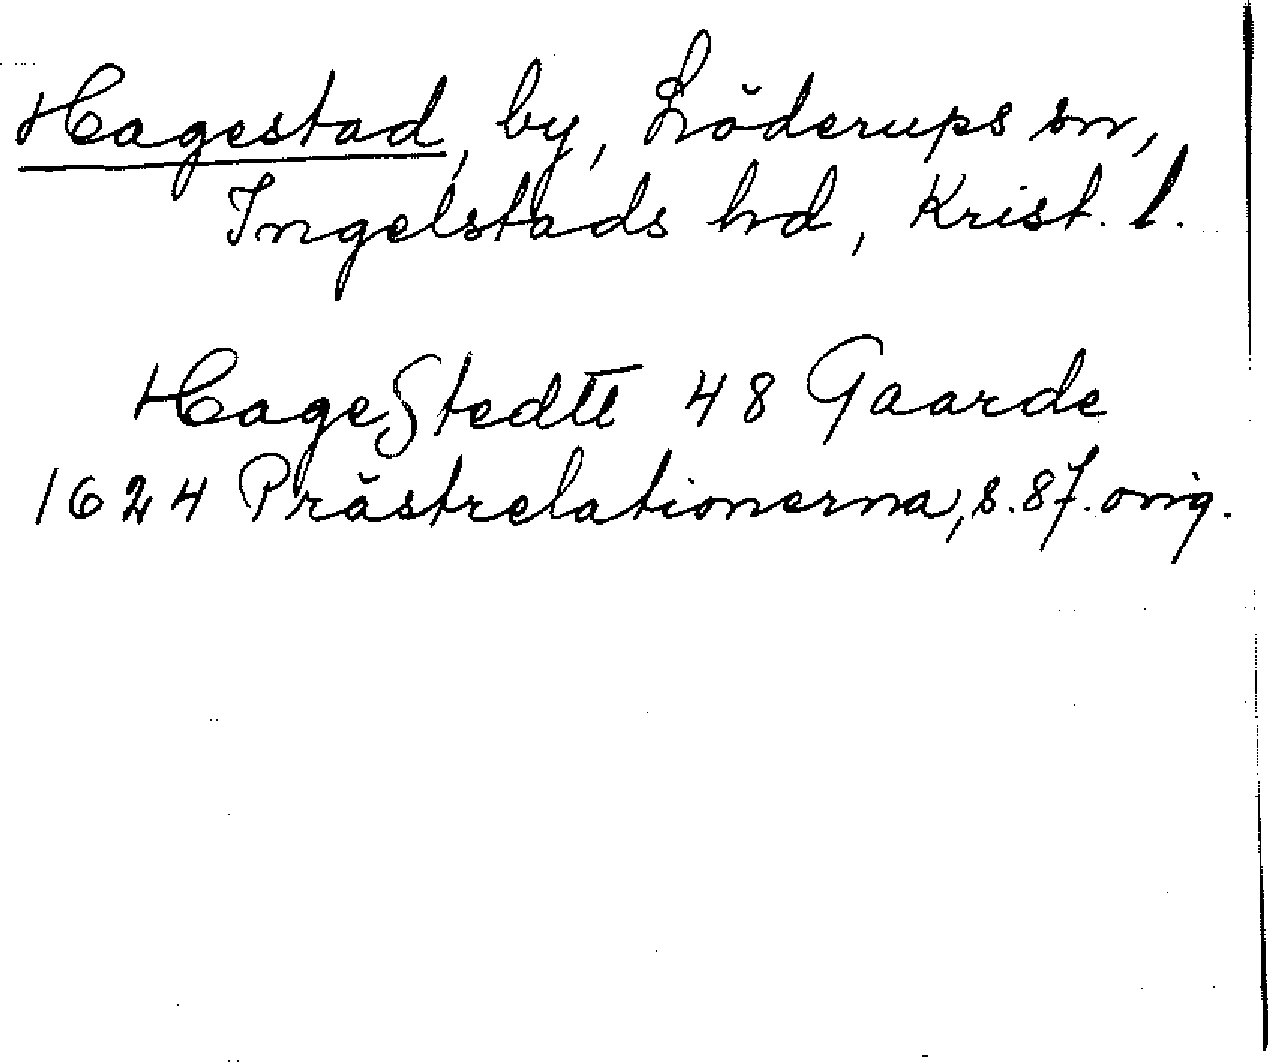 Hagestad, by, Löderups sn,
Ingelstads hd, Krist. l.
HageStedtt 48 Gaarde
1624 Prästrelationerna, s. 87. orig.